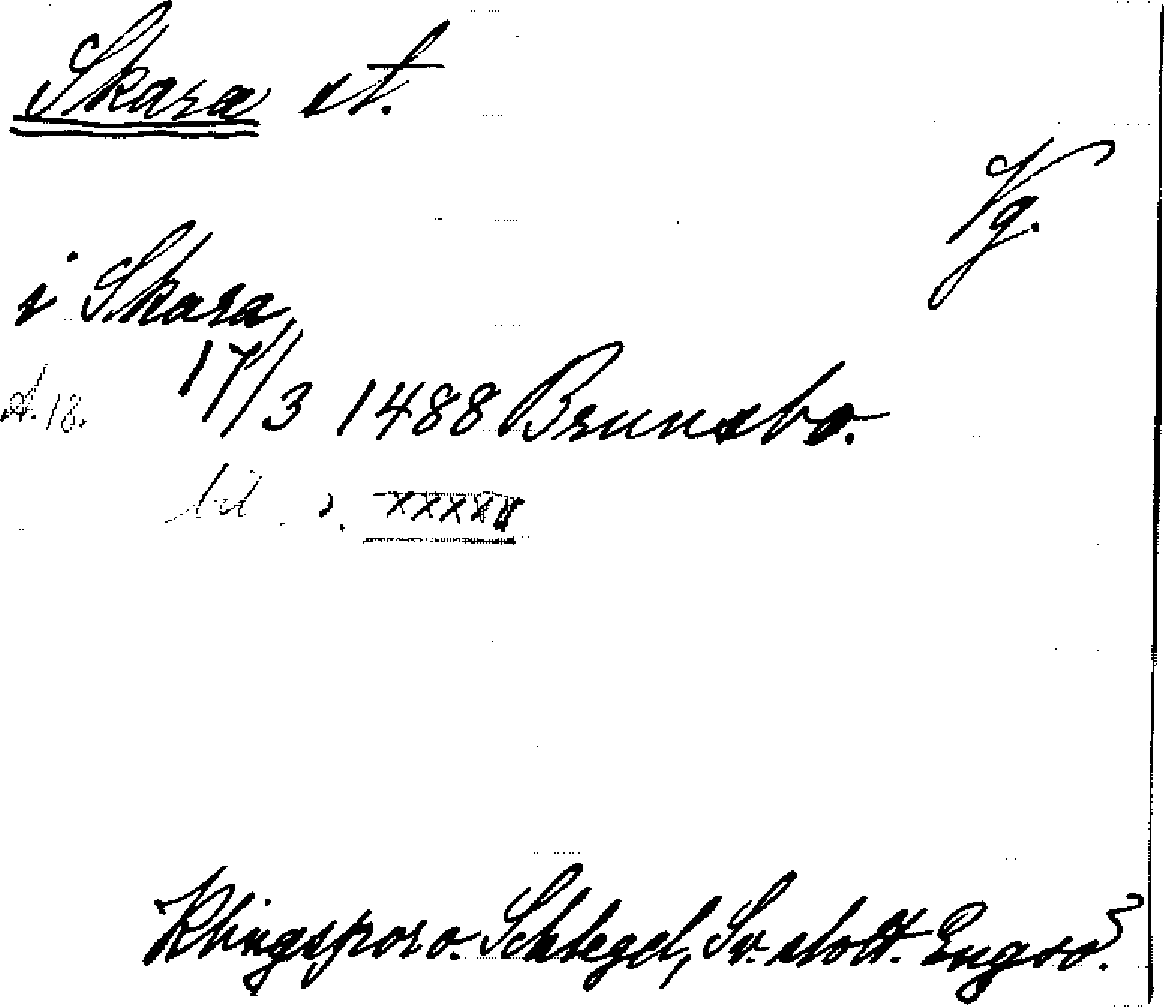 Skara st.
Vg.
i Skara
17/3 1488 Brunsbo.
s. 18.
bil. s. XXXXV
Klingspor o. Schlegel, Sv. slott. Engsö.